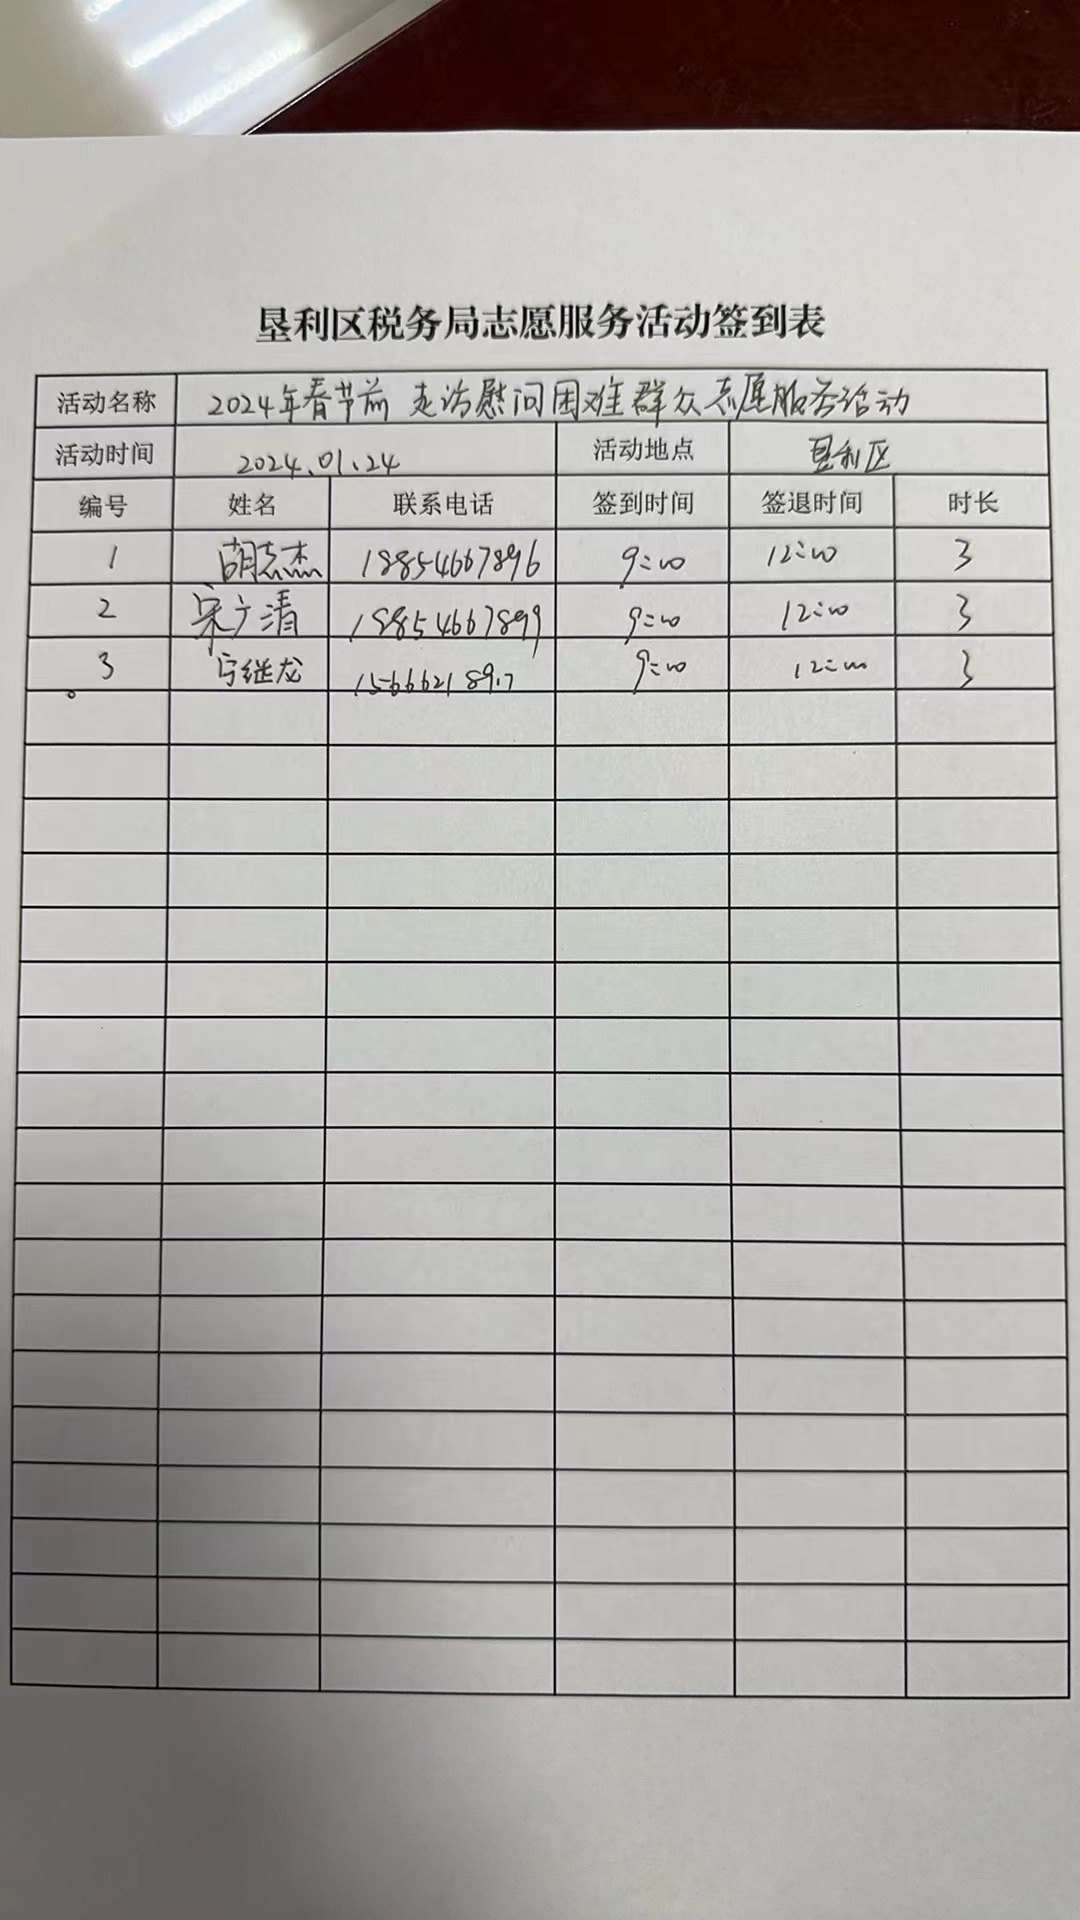 垦利区税务局志愿服务活动签到表
活动名称 2024年春节前 走访慰问困难群众志愿服务活动
活动时间 2024.01.24 活动地点 垦利区
编号 姓名 联系电话 签到时间 签退时间 时长
1 胡志杰 18854667896 9:00 12:00 3
2 宋广清 18854667899 9:00 12:00 3
3 宁继龙 9:00 12:00 3